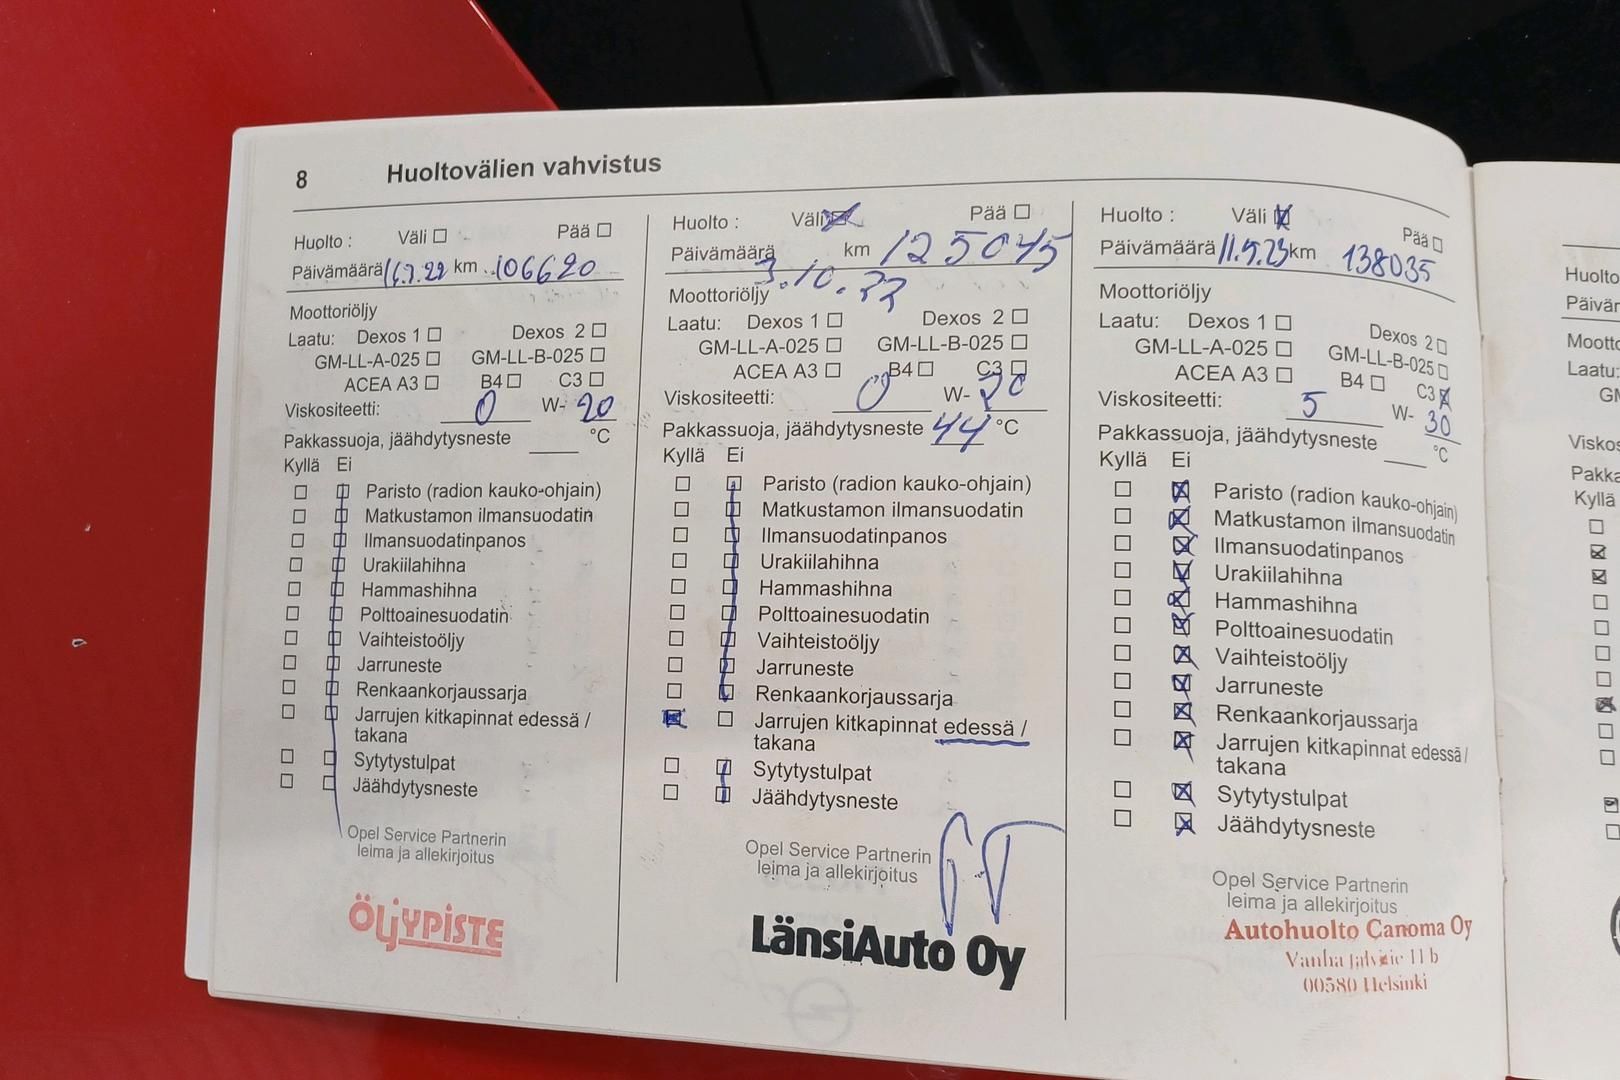 8 Huoltovälien vahvistus
Huolto : Väli Pää
Päivämäärä km 106620
Moottoriöljy
Laatu: Dexos 1 Dexos 2
GM-LL-A-025 GM-LL-B-025
ACEA A3 B4 C3
Viskositeetti: 0 W- 20
Pakkassuoja, jäähdytysneste °C
Kyllä Ei
Paristo (radion kauko-ohjain)
Matkustamon ilmansuodatin
Ilmansuodatinpanos
Urakiilahihna
Hammashihna
Polttoainesuodatin
Vaihteistoöljy
Jarruneste
Renkaankorjaussarja
Jarrujen kitkapinnat edessä /
takana
Sytytystulpat
Jäähdytysneste
Opel Service Partnerin
leima ja allekirjoitus
ÖLJYPISTE
Huolto : Väli Pää
Päivämäärä km 125045
3.10.22
Moottoriöljy
Laatu: Dexos 1 Dexos 2
GM-LL-A-025 GM-LL-B-025
ACEA A3 B4 C3
Viskositeetti: 0 W- 20
Pakkassuoja, jäähdytysneste 44 °C
Kyllä Ei
Paristo (radion kauko-ohjain)
Matkustamon ilmansuodatin
Ilmansuodatinpanos
Urakiilahihna
Hammashihna
Polttoainesuodatin
Vaihteistoöljy
Jarruneste
Renkaankorjaussarja
Jarrujen kitkapinnat edessä /
takana
Sytytystulpat
Jäähdytysneste
Opel Service Partnerin
leima ja allekirjoitus
LänsiAuto Oy
Huolto : Väli Pää
Päivämäärä 11.5.23 km 138035
Moottoriöljy
Laatu: Dexos 1 Dexos 2
GM-LL-A-025 GM-LL-B-025
ACEA A3 B4 C3
Viskositeetti: 5 W- 30
Pakkassuoja, jäähdytysneste °C
Kyllä Ei
Paristo (radion kauko-ohjain)
Matkustamon ilmansuodatin
Ilmansuodatinpanos
Urakiilahihna
Hammashihna
Polttoainesuodatin
Vaihteistoöljy
Jarruneste
Renkaankorjaussarja
Jarrujen kitkapinnat edessä /
takana
Sytytystulpat
Jäähdytysneste
Opel Service Partnerin
leima ja allekirjoitus
Autohuolto Canoma Oy
Vanha 11 b
00580 Helsinki
Huolto
Laatu:
Kyllä